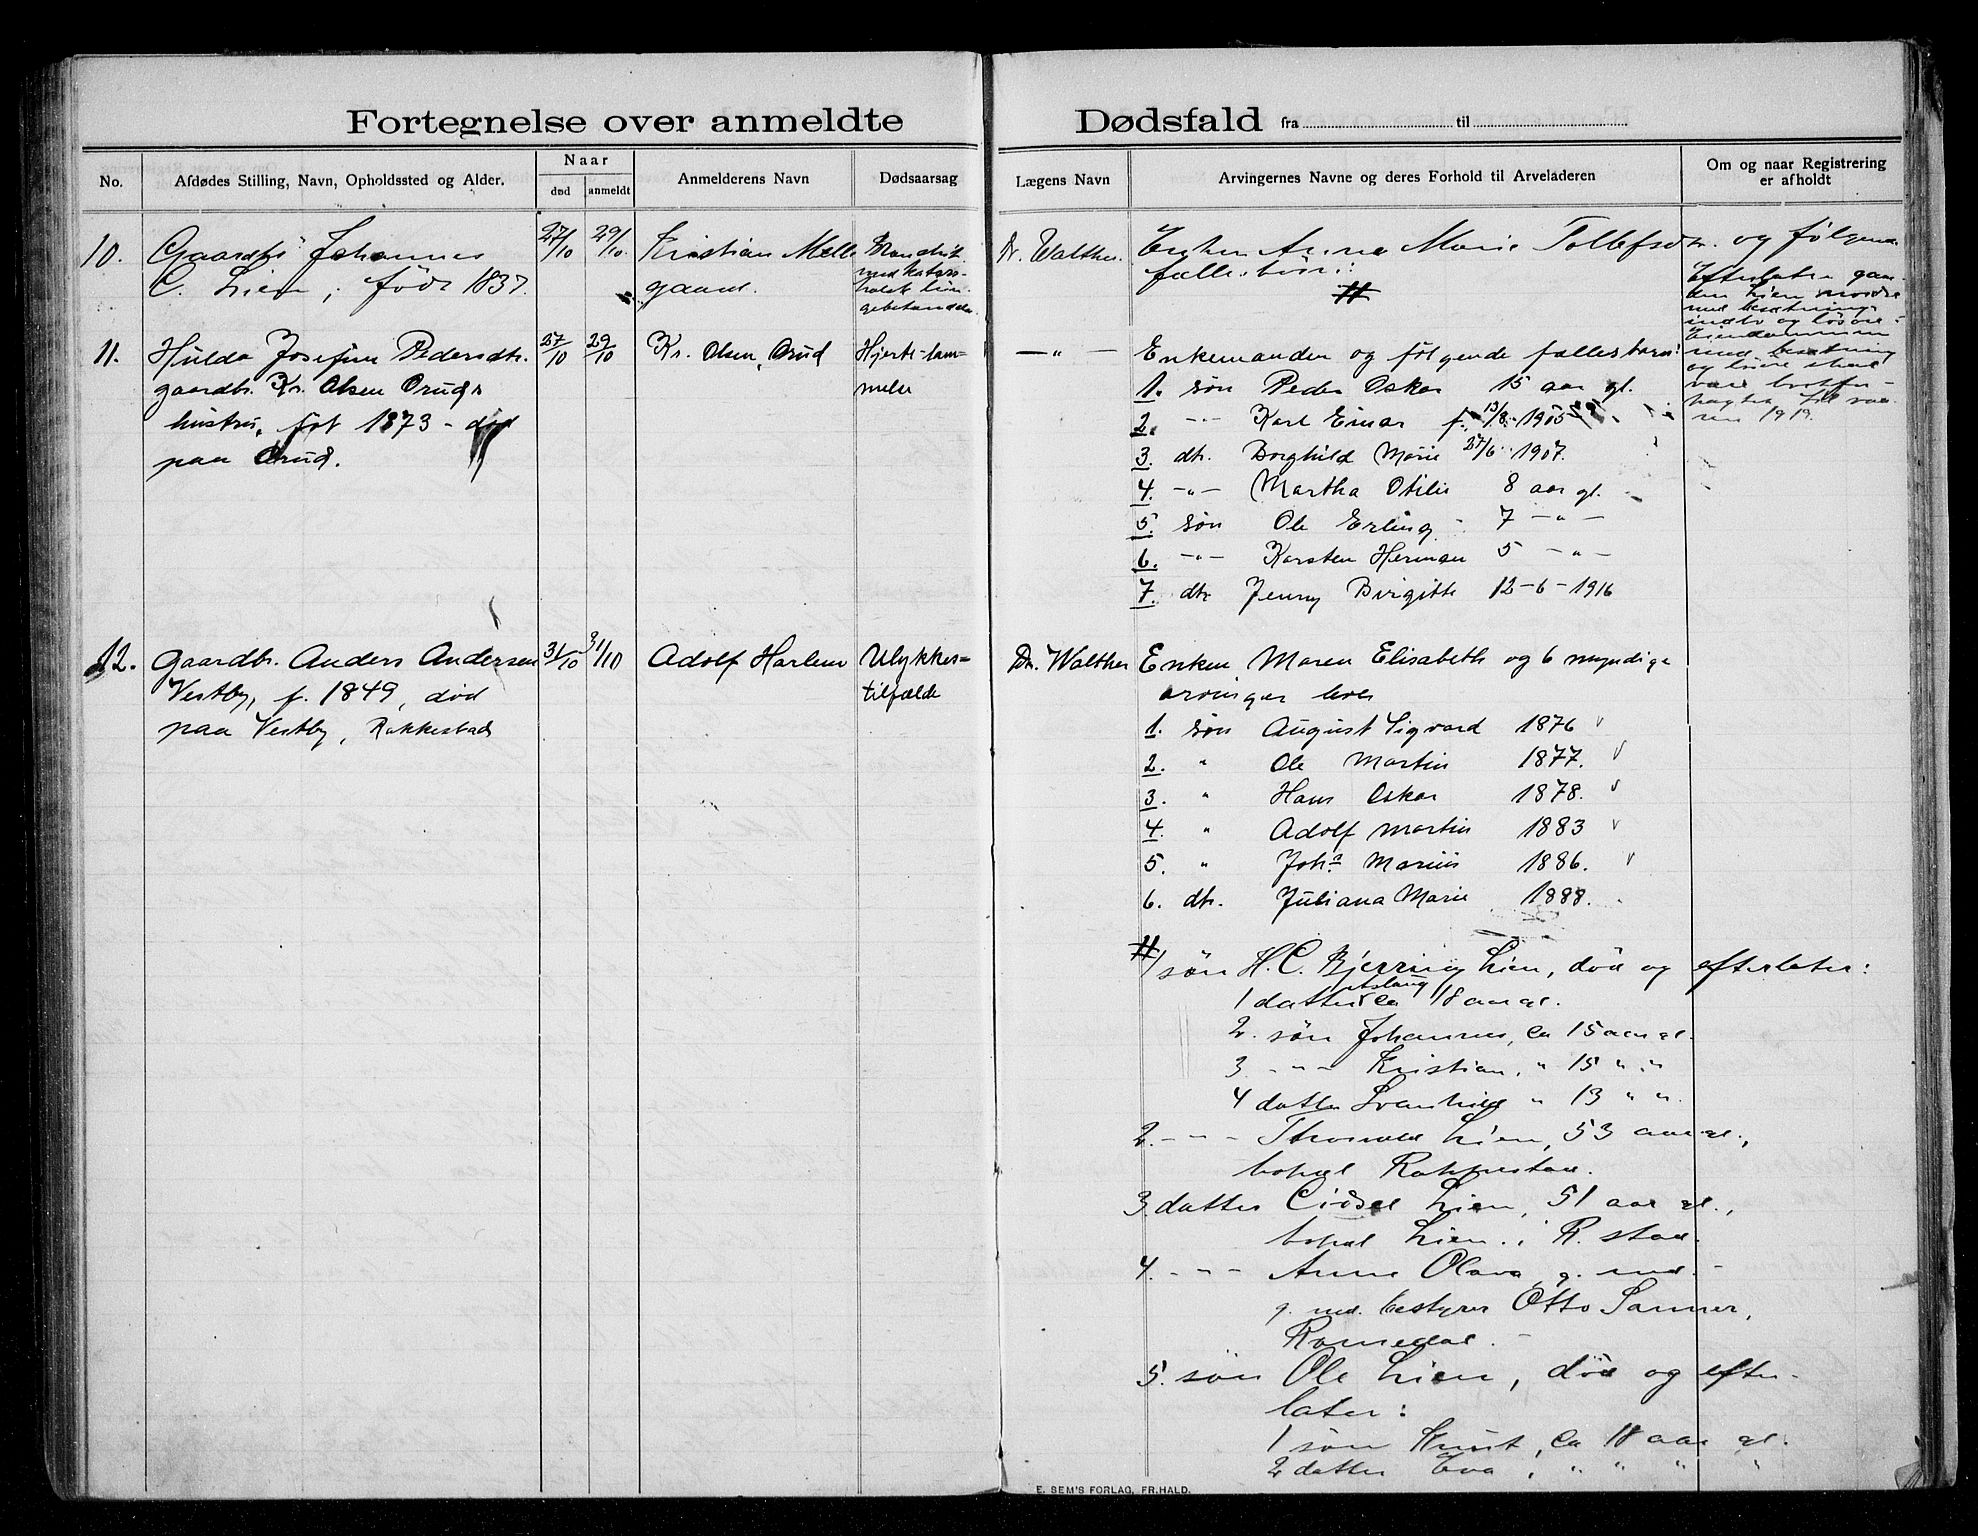 Fortegnelse over anmeldte Dødsfald fra til
No.
Afdødes Stilling, Navn, Opholdssted og Alder.
Naar
død
anmeldt
Anmelderens Navn
Dødsaarsag
Lægens Navn
Arvingernes Navne og deres Forhold til Arveladeren
Om og naar Registrering
er afholdt
10.
Gaardbr Johannes
C. Lien, født 1837.
27/10
29/10.
Kristian Melle-
gaard.
med
Dr. Walther.
Enken Anna Marie Tollefsdtr. og følgende
fællesbørn:
#
Efterlater gaar-
den Lien nordre
med besætning,
indbo og løsøre.
Eiendommen
med besætning
og løsøre skal
være
til
1919.
11.
Hulda Josefine Pedersdtr.
gaardbr. Kr. Olsen Oruds
hustru, føt 1873 - død
paa Orud.
27/10
29/10
Kr. Olsen, Orud
Hjertelam-
melse
— " —
Enkemanden og følgende fællesbarn:
1. søn Peder Oskar 15 aar gl.
2. -"- Karl Einar f. 13/8 1905
3. dtr. Borghild Marie 27/6 1907.
4. -"- Martha Otilie 8 aar gl.
5. søn Ole Erling 7 -"-
6. -"- Karsten Herman 5 -"-
7. dtr Jenny Birgitte 12-6-1916
12.
Gaardbr. Anders Andersen
Vestby, f. 1849, død
paa Vestby, Rakkestad
31/10
31/10
Adolf Harlem
Ulykkes-
tilfælde
Dr. Walther
Enken Maren Elisabeth og 6 myndige
arvinger
1. søn August Sigvard 1876
2. " Ole Martin 1877.
3. " Hans Oskar 1878.
4. " Adolf Martin 1883
5. " Joha Marius 1886.
6. dtr. Juliana Marie 1888.
# 1 søn H. C. Bjerring Lien, død og efterlater:
Aslaug
1 datter ca 18 aar gl.
2. søn Johannes, ca 15 aar gl.
3 -"- Kristian, " 15 " "
4 datter Svanhild " 13 " "
2. -"- Thorvald Lien, 53 aar gl.,
bopæl Rakkestad.
3. datter Cidsel Lien, 51 aar gl.,
bopæl Lien i R.stad.
4. -"- Anne Olava g. med.
g. med. bestyrer Otto Sanner,
Romedal.
5. søn Ole Lien, død og efter-
later:
1 søn Knut, ca 18 aar gl.
2 datter Eva, " " " "
E. SEM'S FORLAG, FR.HALD.